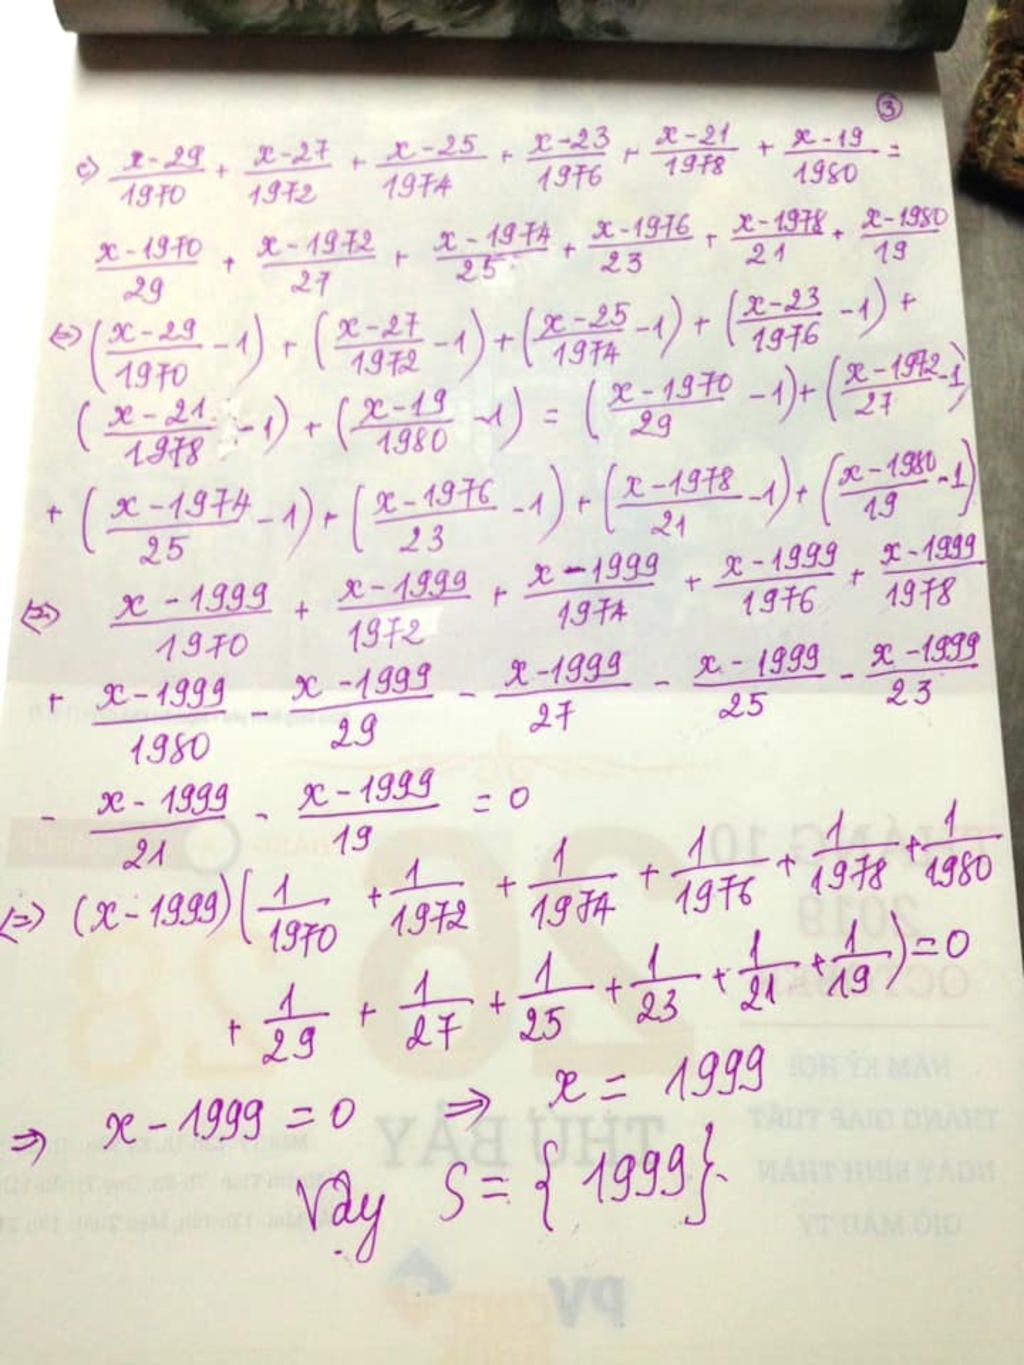 ③
c) \frac{x-29}{1970} + \frac{x-27}{1972} + \frac{x-25}{1974} + \frac{x-23}{1976} + \frac{x-21}{1978} + \frac{x-19}{1980} =
\frac{x-1970}{29} + \frac{x-1972}{27} + \frac{x-1974}{25} + \frac{x-1976}{23} + \frac{x-1978}{21} + \frac{x-1980}{19}
(=) (\frac{x-29}{1970} - 1) + (\frac{x-27}{1972} - 1) + (\frac{x-25}{1974} - 1) + (\frac{x-23}{1976} - 1) +
(\frac{x-21}{1978} - 1) + (\frac{x-19}{1980} - 1) = (\frac{x-1970}{29} - 1) + (\frac{x-1972}{27} - 1)
+ (\frac{x-1974}{25} - 1) + (\frac{x-1976}{23} - 1) + (\frac{x-1978}{21} - 1) + (\frac{x-1980}{19} - 1)
(=) \frac{x-1999}{1970} + \frac{x-1999}{1972} + \frac{x-1999}{1974} + \frac{x-1999}{1976} + \frac{x-1999}{1978}
+ \frac{x-1999}{1980} - \frac{x-1999}{29} - \frac{x-1999}{27} - \frac{x-1999}{25} - \frac{x-1999}{23}
- \frac{x-1999}{21} - \frac{x-1999}{19} = 0
(=) (x-1999)(\frac{1}{1970} + \frac{1}{1972} + \frac{1}{1974} + \frac{1}{1976} + \frac{1}{1978} + \frac{1}{1980}
+ \frac{1}{29} + \frac{1}{27} + \frac{1}{25} + \frac{1}{23} + \frac{1}{21} + \frac{1}{19}) = 0
⇒ x - 1999 = 0 ⇒ x = 1999
Vậy S = {1999}.
THÁNG 10
2019
26
28
THỨ BẢY
NĂM KỶ HỢI
THÁNG GIÁP TUẤT
NGÀY BÍNH THÂN
GIỜ MẬU TÝ
PV